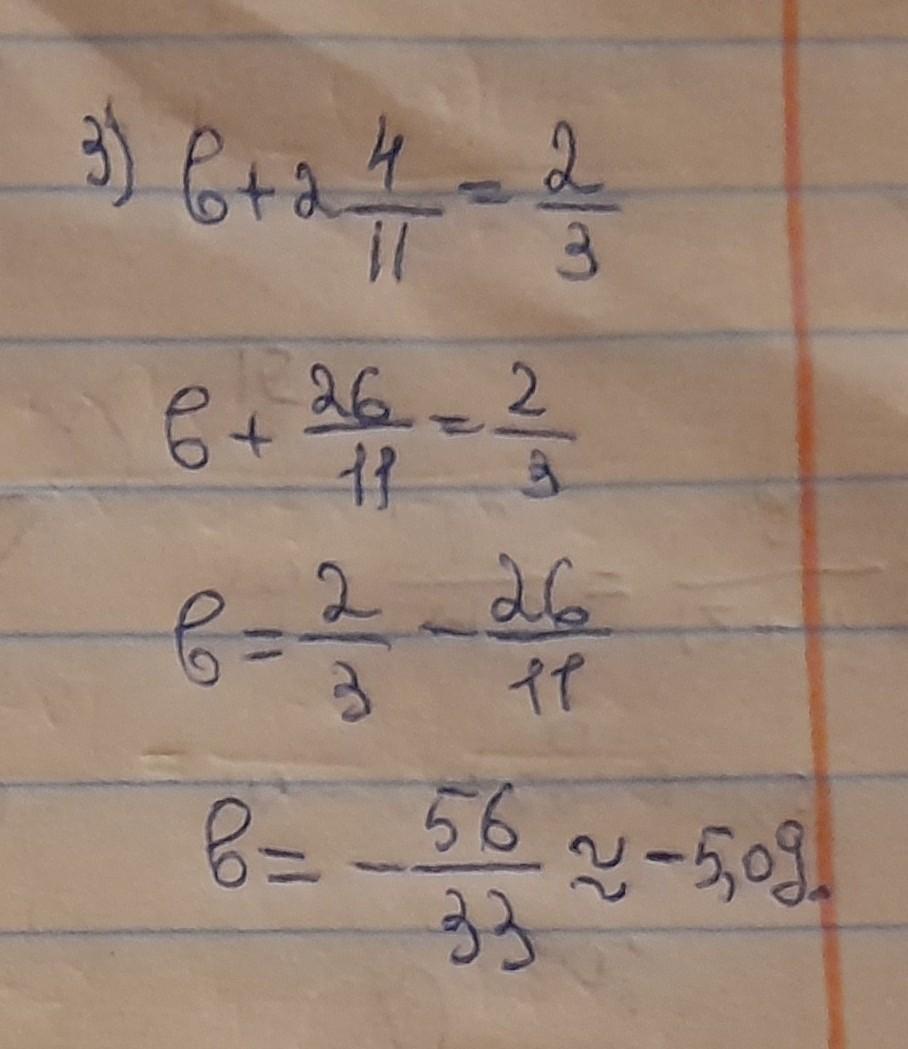 3) в + 2 4/11 = 2/3
в + 26/11 = 2/3
в = 2/3 - 26/11
в = - 56/33 ≈ -5,09.